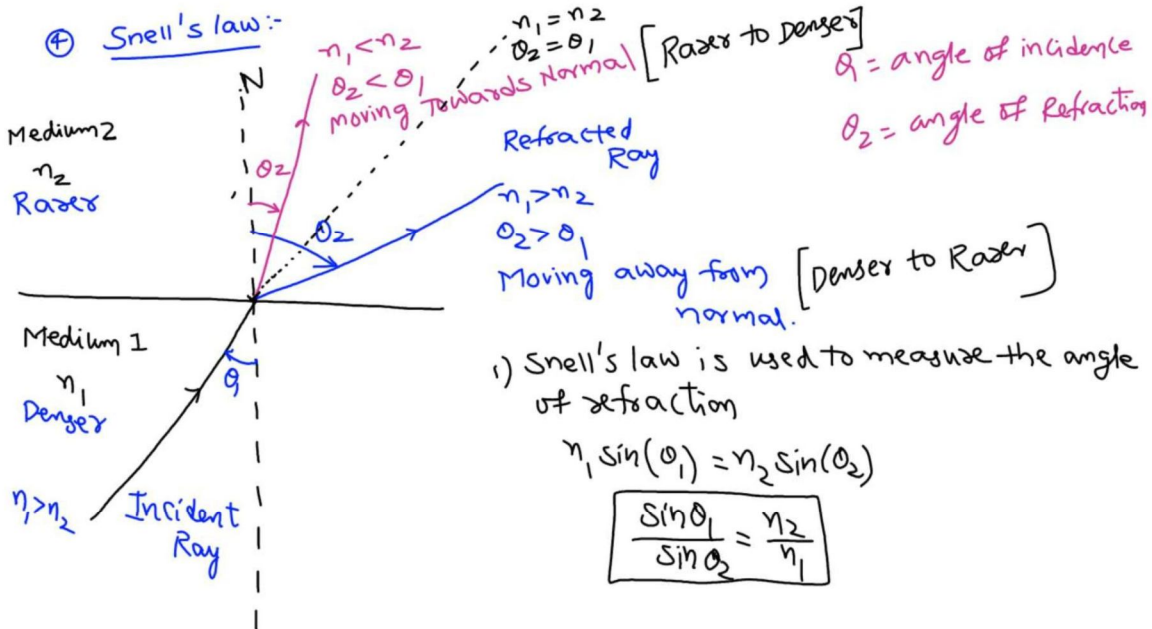 ④ Snell's law:-
N
n₁ < n₂
θ₂ < θ₁
Moving Towards Normal [Rarer to Denser]
n₁ = n₂
θ₂ = θ₁
θ₁ = angle of incidence
θ₂ = angle of Refraction
Medium 2
n₂
Rarer
θ₂
θ₂
Refracted
Ray
n₁ > n₂
θ₂ > θ₁
Moving away from
normal. [Denser to Rarer]
Medium 1
n₁
Denser
θ₁
n₁ > n₂
Incident
Ray
1) Snell's law is used to measure the angle
of refraction
n₁ sin(θ₁) = n₂ sin(θ₂)
sinθ₁ / sinθ₂ = n₂ / n₁